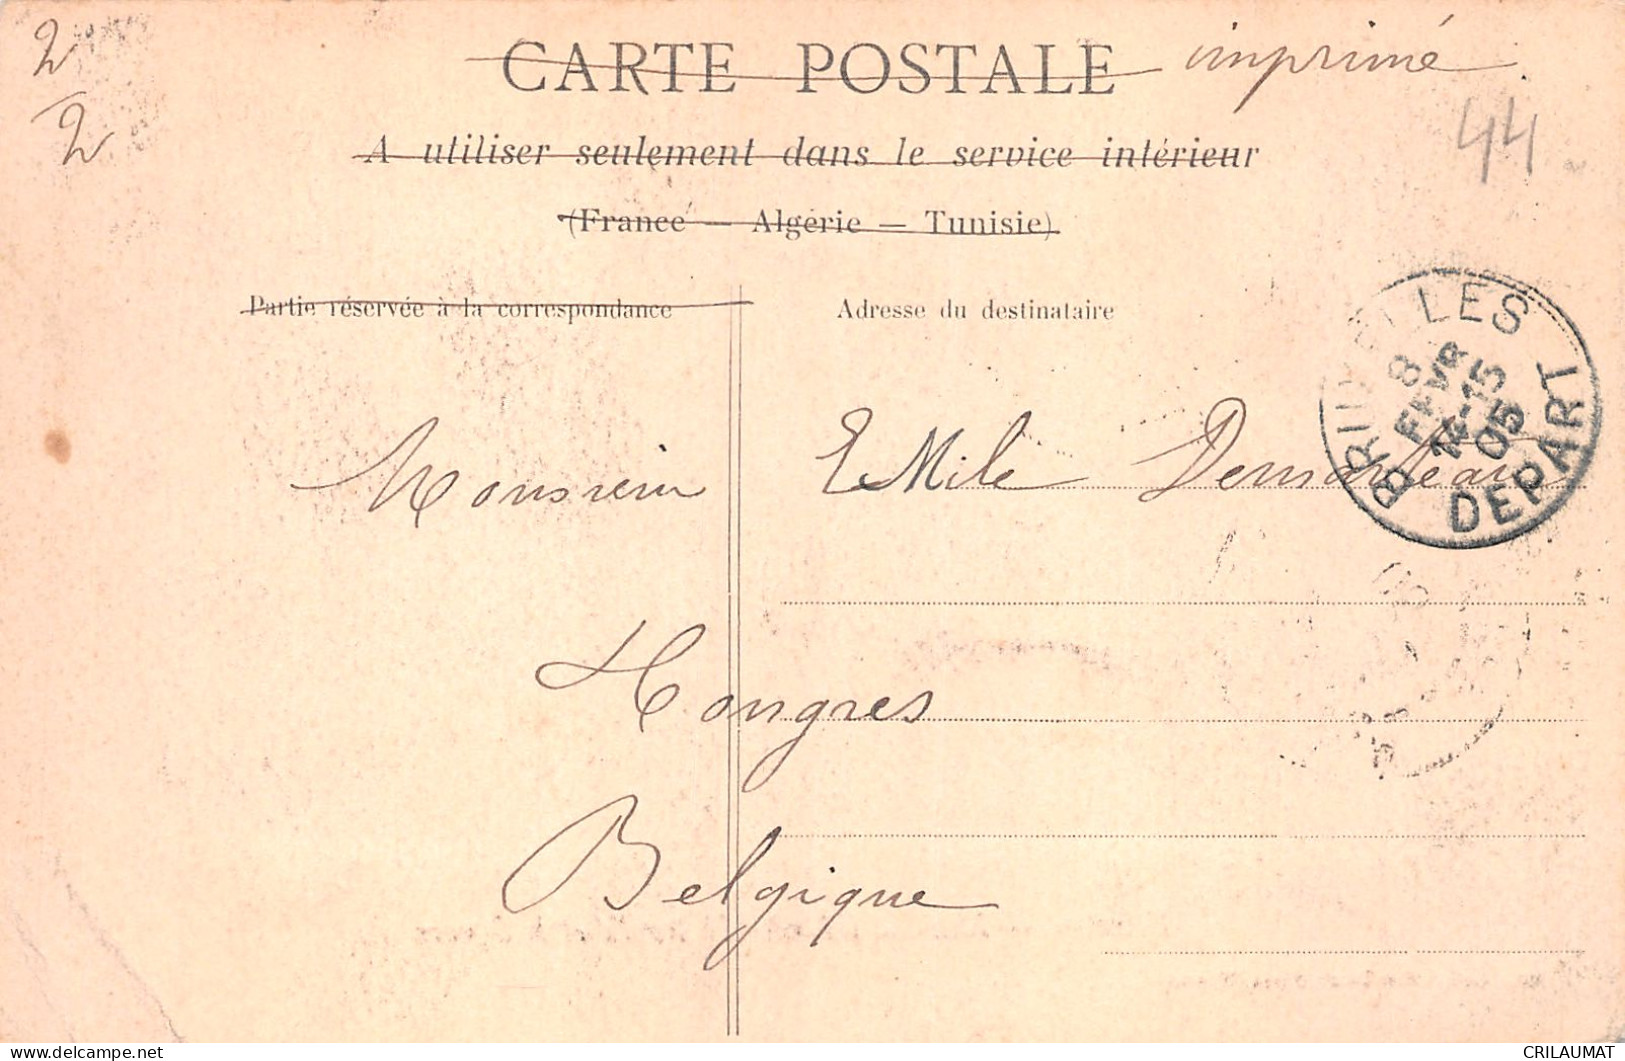 2
2
CARTE POSTALE imprimé
44
A utiliser seulement dans le service intérieur
(France — Algérie — Tunisie)
Partie réservée à la correspondance
Adresse du destinataire
BRUXELLES
8
FEVR
14-15
05
DEPART
Monsieur Emile Demarteau
Tongres
Belgique
CRILAUMAT